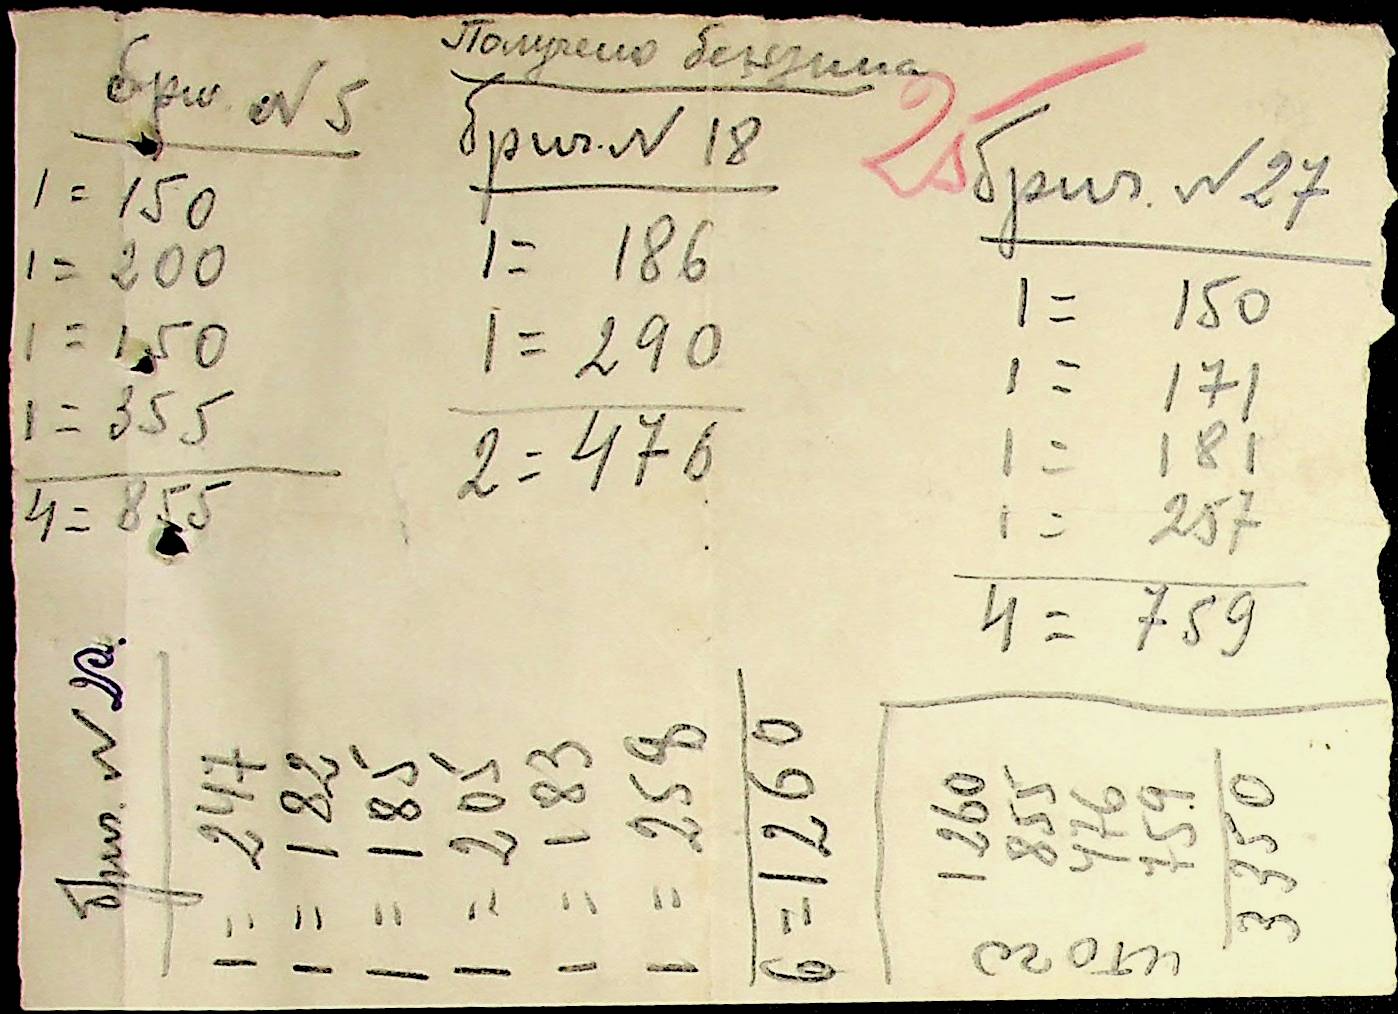 Получено бензина
бриг. № 5
1 = 150
1 = 200
1 = 150
1 = 355
4 = 855
бриг. № 18
1 = 186
1 = 290
2 = 476
25
бриг. № 27
1 = 150
1 = 171
1 = 181
1 = 257
4 = 759
бриг. № 2а.
1 = 247
1 = 182
1 = 185
1 = 205
1 = 183
1 = 258
6 = 1260
1260
855
476
759
3350